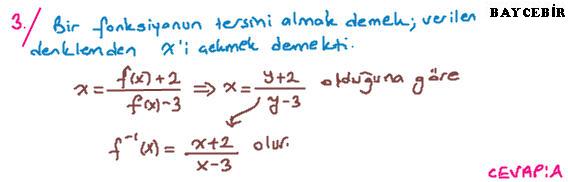 3./ Bir fonksiyonun tersini almak demek; verilen BAYCEBİR
denklemden x'i çekmek demekti.
x = f(x)+2 / f(x)-3 ⇒ x = y+2 / y-3 olduğuna göre
f⁻¹(x) = x+2 / x-3 olur.
CEVAP:A